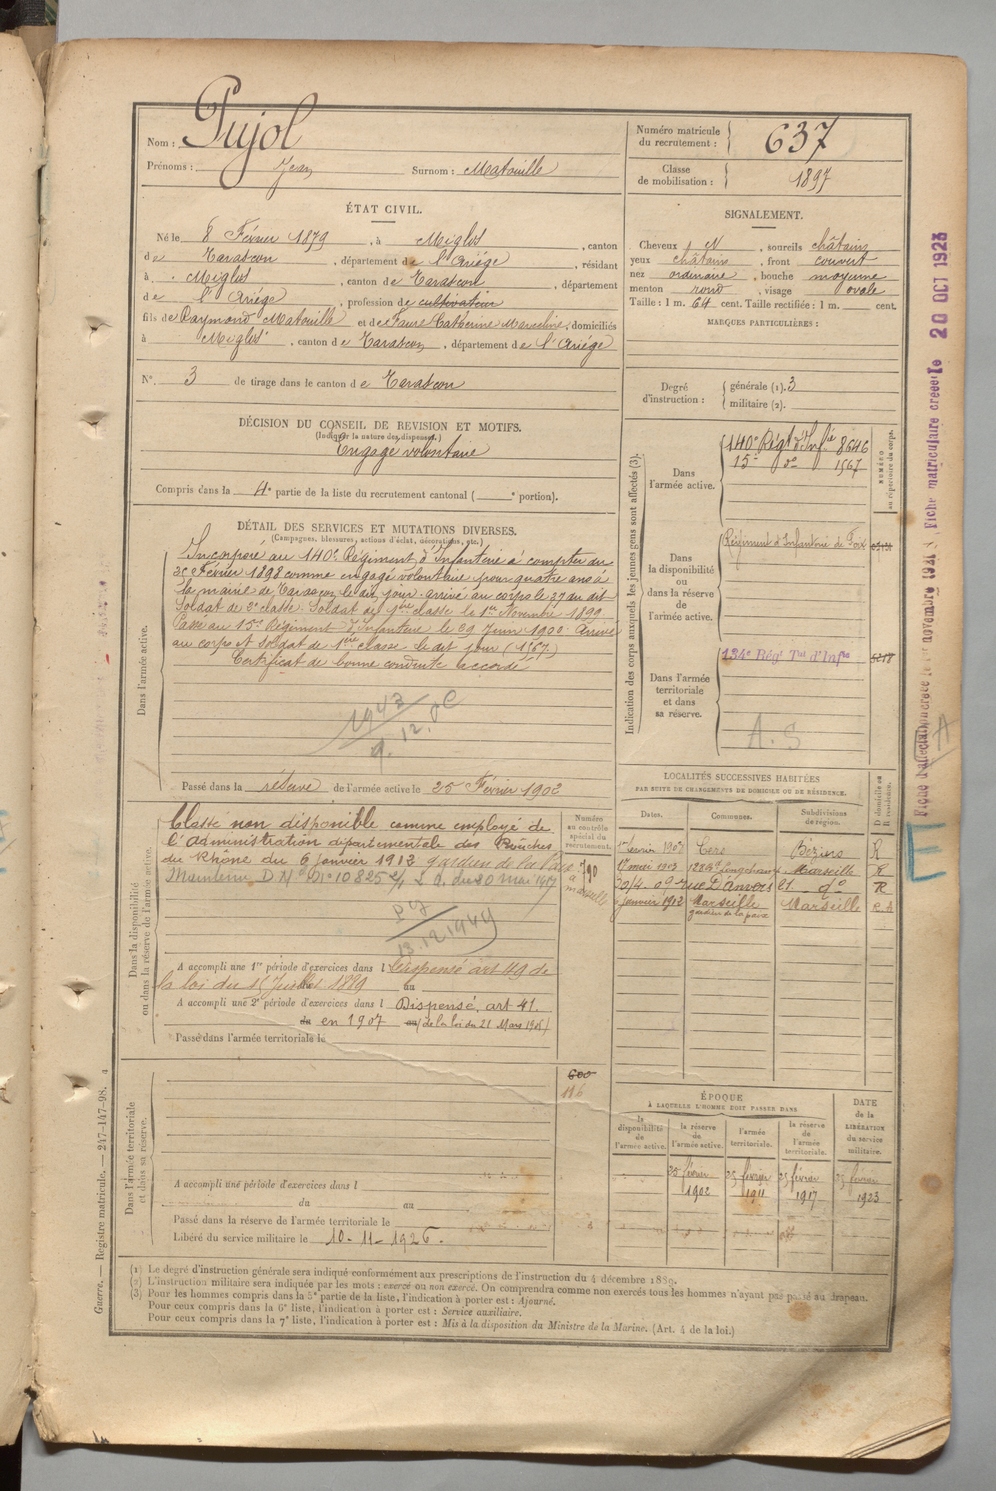 Nom : Pujol
Prénoms : Jean Surnom : Matouille
Numéro matricule du recrutement : 637
Classe de mobilisation : 1897
ÉTAT CIVIL.
Né le 8 Février 1879, à Miglos, canton
de Tarascon, département de l'Ariège, résidant
à Miglos, canton de Tarascon, département
de l'Ariège, profession de cultivateur
fils de Raymond Matouille et de Faure Catherine Marceline, domiciliés
à Miglos, canton de Tarascon, département de l'Ariège
N° 3 de tirage dans le canton de Tarascon
SIGNALEMENT.
Cheveux N, sourcils châtains
yeux châtains, front couvert
nez ordinaire, bouche moyenne
menton rond, visage ovale
Taille : 1 m. 64 cent. Taille rectifiée : 1 m. cent.
MARQUES PARTICULIÈRES :
Degré d'instruction : générale (1). 3
militaire (2).
DÉCISION DU CONSEIL DE REVISION ET MOTIFS.
(Indiquer la nature des dispenses.)
Engagé volontaire
Compris dans la 4e partie de la liste du recrutement cantonal ( e portion).
DÉTAIL DES SERVICES ET MUTATIONS DIVERSES.
(Campagnes, blessures, actions d'éclat, décorations, etc.)
Dans l'armée active.
Incorporé au 140e Régiment d'Infanterie à compter du
Février 1898 comme engagé volontaire pour quatre ans à
la mairie de Tarascon le dit jour. arrivé au corps le 27 du dit
Soldat de 2e classe. Soldat de 1ère classe le 1er Novembre 1899
Passé au 15e Régiment d'Infanterie le 29 Juin 1900. Arrivé
au corps et Soldat de 1ère classe le dit jour (1567)
Certificat de bonne conduite accordé
1943
9.12.
Passé dans la réserve de l'armée active le 25 Février 1902
Indication des corps auxquels les jeunes gens sont affectés (3).
NUMÉRO au répertoire du corps.
Dans l'armée active.
140e Régt d'Infie 8646
15e do 1567
Dans la disponibilité ou dans la réserve de l'armée active.
Régiment d'Infanterie de Foix
Dans l'armée territoriale et dans sa réserve.
134e Régt Tal d'Infie
A. S
Fiche matriculaire créée le 20 OCT 1923
Dans la disponibilité ou dans la réserve de l'armée active.
Numéro au contrôle spécial du recrutement.
Classé non disponible comme employé de
l'administration départementale des Bouches
du Rhône du 6 janvier 1913 gardien de la Paix
à Marseille
790
Maintenu D. M. N° 10825 du 30 mai 1917
13.12.1949
A accompli une 1re période d'exercices dans l Dispensé art 49 de
la loi du 15 Juillet 1889 au
A accompli une 2e période d'exercices dans l Dispensé, art 41.
du en 1907 au (de la loi du 21 Mars 1905)
Passé dans l'armée territoriale le
LOCALITÉS SUCCESSIVES HABITÉES
PAR SUITE DE CHANGEMENTS DE DOMICILE OU DE RÉSIDENCE.
Dates. Communes. Subdivisions de région. D domicile ou R résidence.
Cers Béziers R
17 mai 1903 Longchamp Marseille R
30/4 09 rue d'Anvers 21 do R
janvier 1912 Marseille Marseille
gardien de la paix
Dans l'armée territoriale et dans sa réserve.
600
116
A accompli une période d'exercices dans l
du au
Passé dans la réserve de l'armée territoriale le
Libéré du service militaire le 10-11-1926.
ÉPOQUE
À LAQUELLE L'HOMME DOIT PASSER DANS
la disponibilité de l'armée active. la réserve de l'armée active. l'armée territoriale. la réserve de l'armée territoriale.
DATE de la LIBÉRATION du service militaire.
25 février 1902 25 février 1911 25 février 1917 25 février 1923
(1) Le degré d'instruction générale sera indiqué conformément aux prescriptions de l'instruction du 4 décembre 1889.
(2) L'instruction militaire sera indiquée par les mots : exercé ou non exercé. On comprendra comme non exercés tous les hommes n'ayant pas passé au drapeau.
(3) Pour les hommes compris dans la 5e partie de la liste, l'indication à porter est : Ajourné.
Pour ceux compris dans la 6e liste, l'indication à porter est : Service auxiliaire.
Pour ceux compris dans la 7e liste, l'indication à porter est : Mis à la disposition du Ministre de la Marine. (Art. 4 de la loi.)
Guerre. — Registre matricule. — 247-147-98.